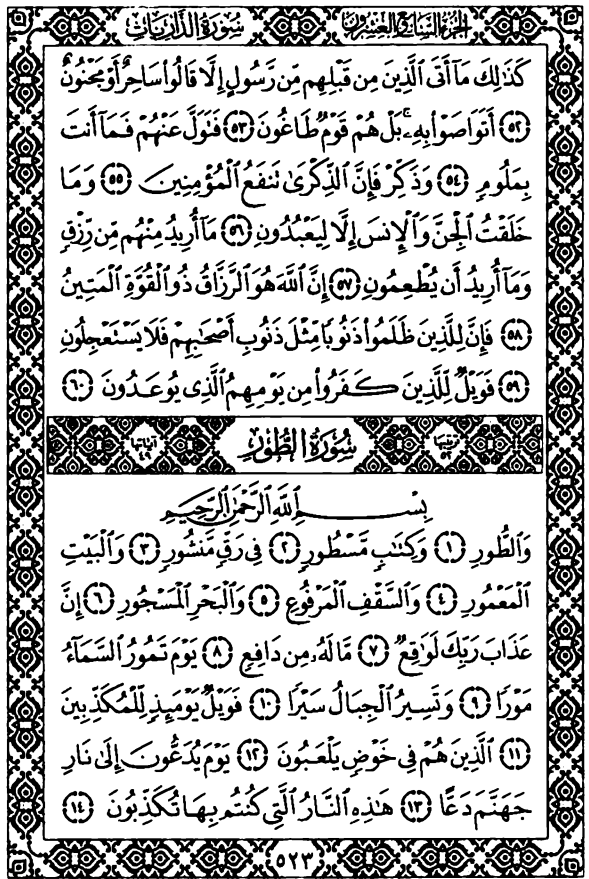 الجزء السابع والعشرون سورة الذاريات
كَذَٰلِكَ مَآ أَتَى ٱلَّذِينَ مِن قَبْلِهِم مِّن رَّسُولٍ إِلَّا قَالُوا۟ سَاحِرٌ أَوْ مَجْنُونٌ
﴿٥٢﴾ أَتَوَاصَوْا۟ بِهِۦ ۚ بَلْ هُمْ قَوْمٌ طَاغُونَ ﴿٥٣﴾ فَتَوَلَّ عَنْهُمْ فَمَآ أَنتَ
بِمَلُومٍ ﴿٥٤﴾ وَذَكِّرْ فَإِنَّ ٱلذِّكْرَىٰ تَنفَعُ ٱلْمُؤْمِنِينَ ﴿٥٥﴾ وَمَا
خَلَقْتُ ٱلْجِنَّ وَٱلْإِنسَ إِلَّا لِيَعْبُدُونِ ﴿٥٦﴾ مَآ أُرِيدُ مِنْهُم مِّن رِّزْقٍ
وَمَآ أُرِيدُ أَن يُطْعِمُونِ ﴿٥٧﴾ إِنَّ ٱللَّهَ هُوَ ٱلرَّزَّاقُ ذُو ٱلْقُوَّةِ ٱلْمَتِينُ
﴿٥٨﴾ فَإِنَّ لِلَّذِينَ ظَلَمُوا۟ ذَنُوبًا مِّثْلَ ذَنُوبِ أَصْحَـٰبِهِمْ فَلَا يَسْتَعْجِلُونِ
﴿٥٩﴾ فَوَيْلٌ لِّلَّذِينَ كَفَرُوا۟ مِن يَوْمِهِمُ ٱلَّذِى يُوعَدُونَ ﴿٦٠﴾
ترتيبها ٥٢ سُورَةُ الطُّورِ آياتها ٤٩
بِسْمِ ٱللَّهِ ٱلرَّحْمَـٰنِ ٱلرَّحِيمِ
وَٱلطُّورِ ﴿١﴾ وَكِتَـٰبٍ مَّسْطُورٍ ﴿٢﴾ فِى رَقٍّ مَّنشُورٍ ﴿٣﴾ وَٱلْبَيْتِ
ٱلْمَعْمُورِ ﴿٤﴾ وَٱلسَّقْفِ ٱلْمَرْفُوعِ ﴿٥﴾ وَٱلْبَحْرِ ٱلْمَسْجُورِ ﴿٦﴾ إِنَّ
عَذَابَ رَبِّكَ لَوَٰقِعٌ ﴿٧﴾ مَّا لَهُۥ مِن دَافِعٍ ﴿٨﴾ يَوْمَ تَمُورُ ٱلسَّمَآءُ
مَوْرًا ﴿٩﴾ وَتَسِيرُ ٱلْجِبَالُ سَيْرًا ﴿١٠﴾ فَوَيْلٌ يَوْمَئِذٍ لِّلْمُكَذِّبِينَ
﴿١١﴾ ٱلَّذِينَ هُمْ فِى خَوْضٍ يَلْعَبُونَ ﴿١٢﴾ يَوْمَ يُدَعُّونَ إِلَىٰ نَارِ
جَهَنَّمَ دَعًّا ﴿١٣﴾ هَـٰذِهِ ٱلنَّارُ ٱلَّتِى كُنتُم بِهَا تُكَذِّبُونَ ﴿١٤﴾
٥٢٣